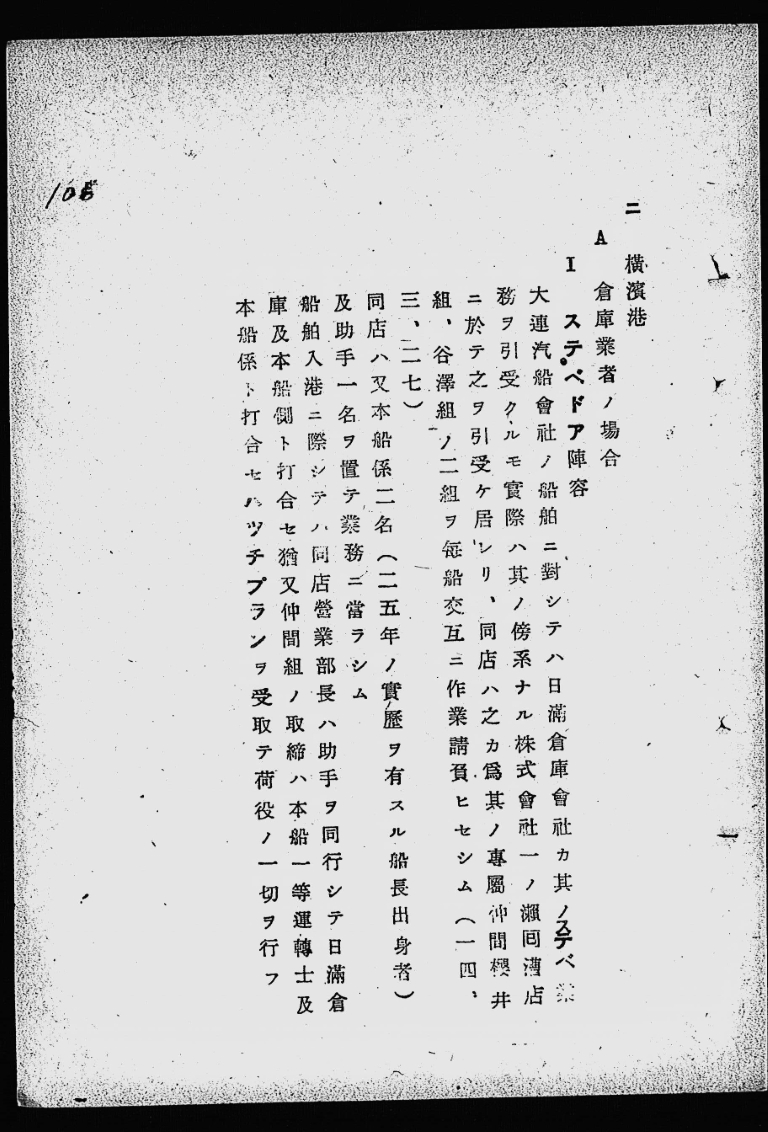 二 横濱港
A 倉庫業者ノ場合
I ステベドア陣容
大連汽船會社ノ船舶ニ對シテハ日滿倉庫會社カ其ノステベ業
務ヲ引受クルモ實際ハ其ノ傍系ナル株式會社一ノ瀨回漕店
ニ於テ之ヲ引受ケ居レリ、同店ハ之カ爲其ノ專屬仲間櫻井
組、谷澤組ノ二組ヲ每船交互ニ作業請負ヒセシム(一四、
三、二七)
同店ハ又本船係二名(二五年ノ實歷ヲ有スル船長出身者)
及助手一名ヲ置テ業務ニ當ラシム
船舶入港ニ際シテハ同店營業部長ハ助手ヲ同行シテ日滿倉
庫及本船側ト打合セ猶又仲間組ノ取締ハ本船一等運轉士及
本船係ト打合セハツチプランヲ受取テ荷役ノ一切ヲ行フ
108